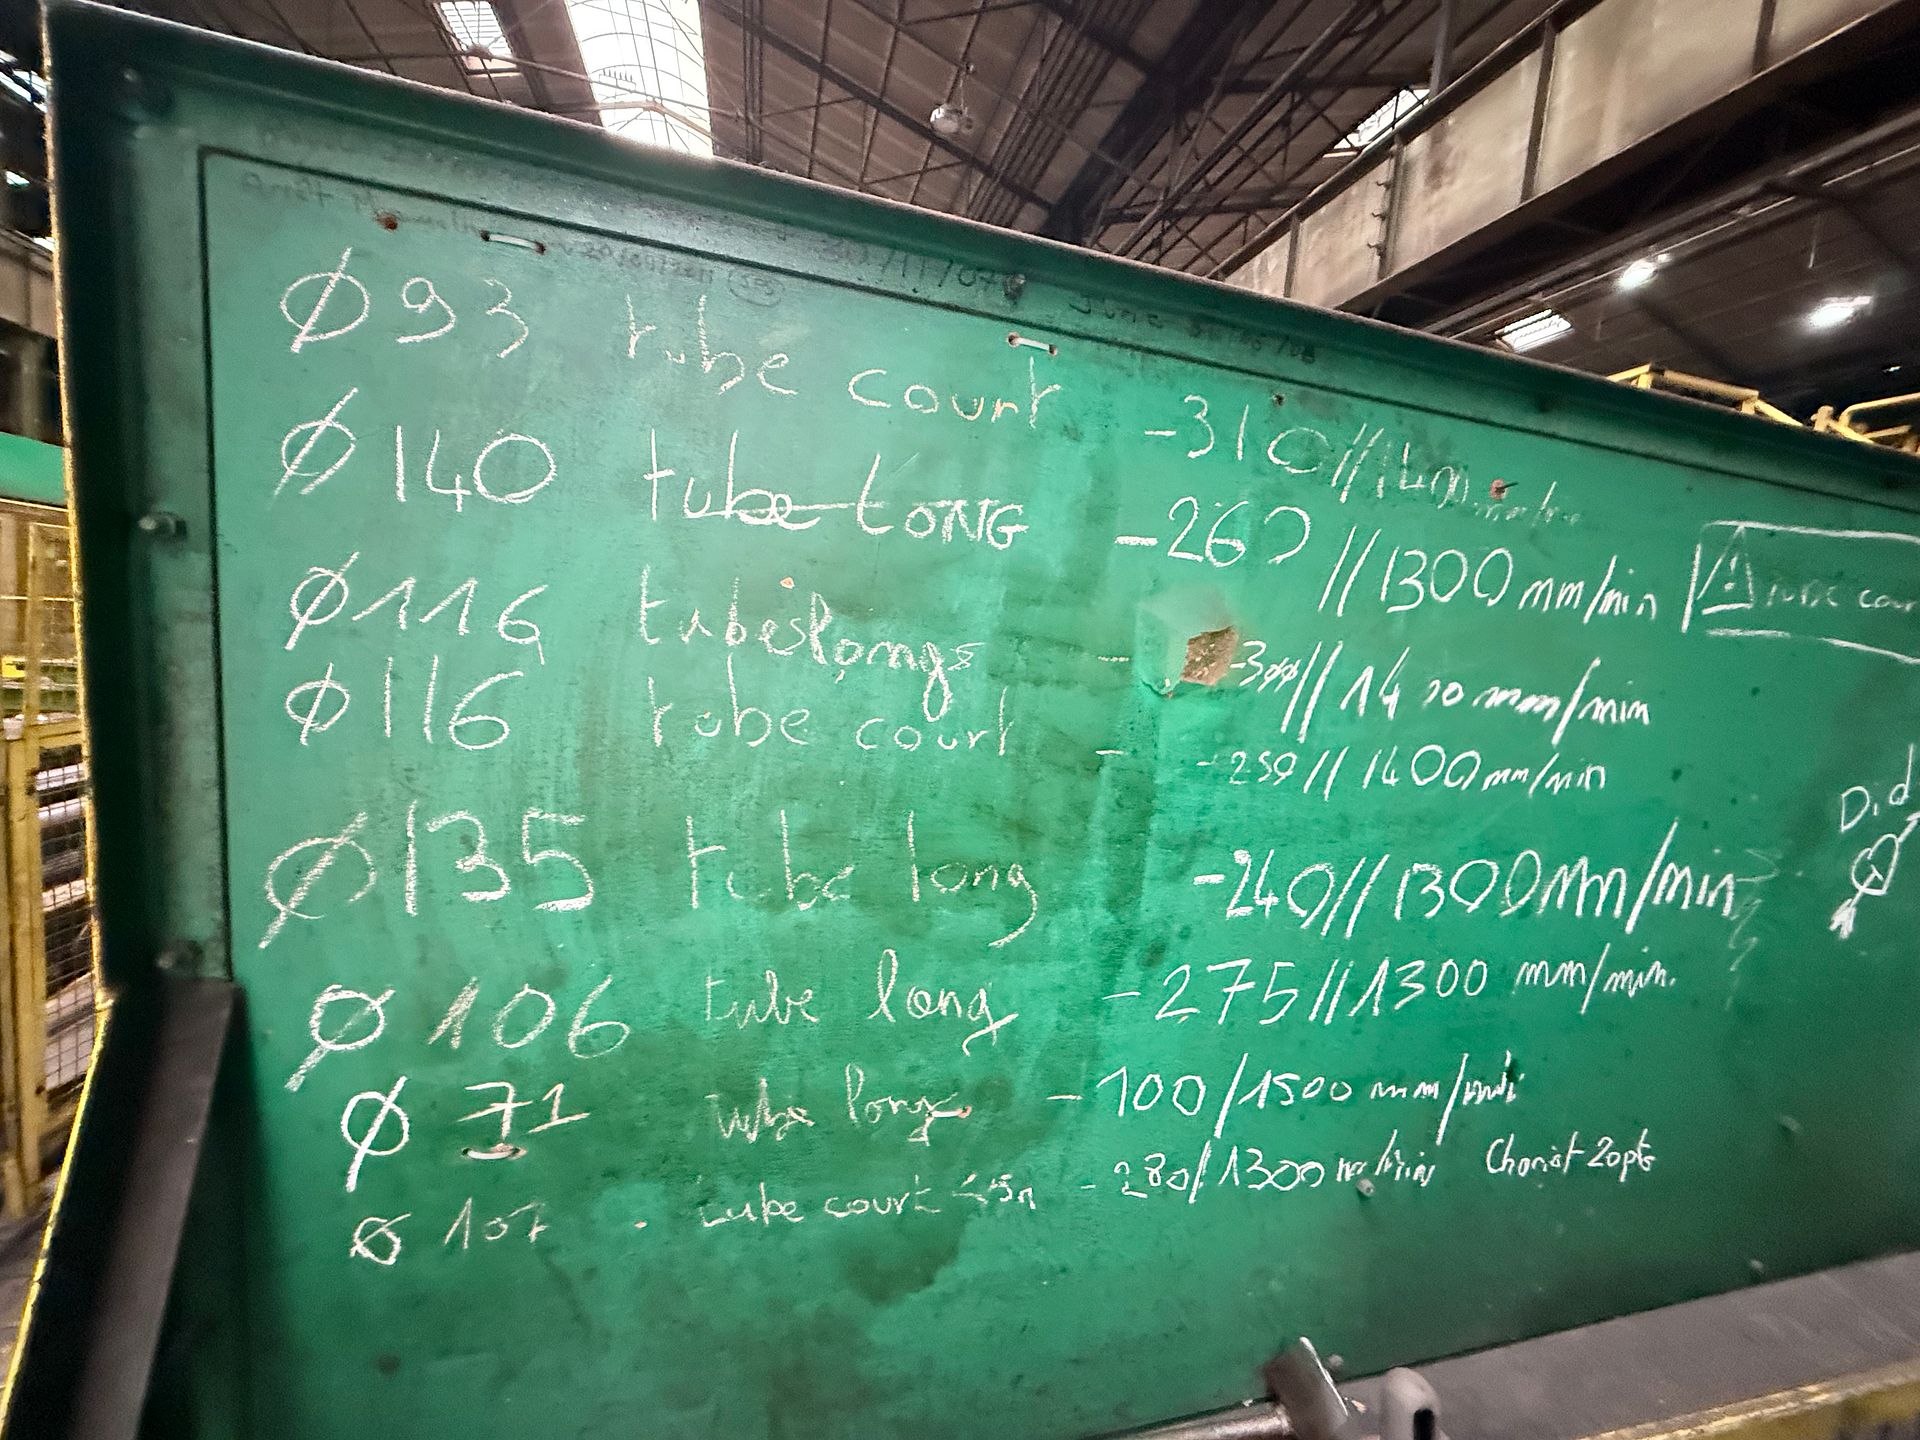 Ø 93 tube court -310//1400 mm/min
Ø 140 tube LONG -260 //1300 mm/min ⚠ tube cour
Ø 116 tubes longs - //1400 mm/min
Ø 116 tube court - -259//1400 mm/min
Ø 135 tube long -240//1300 mm/min
Did
Ø 106 tube long -275//1300 mm/min.
Ø 71 tube long - 100/1500 mm/min
Ø 107 . tube court - 280/1300 mm/min Chariot 20pts